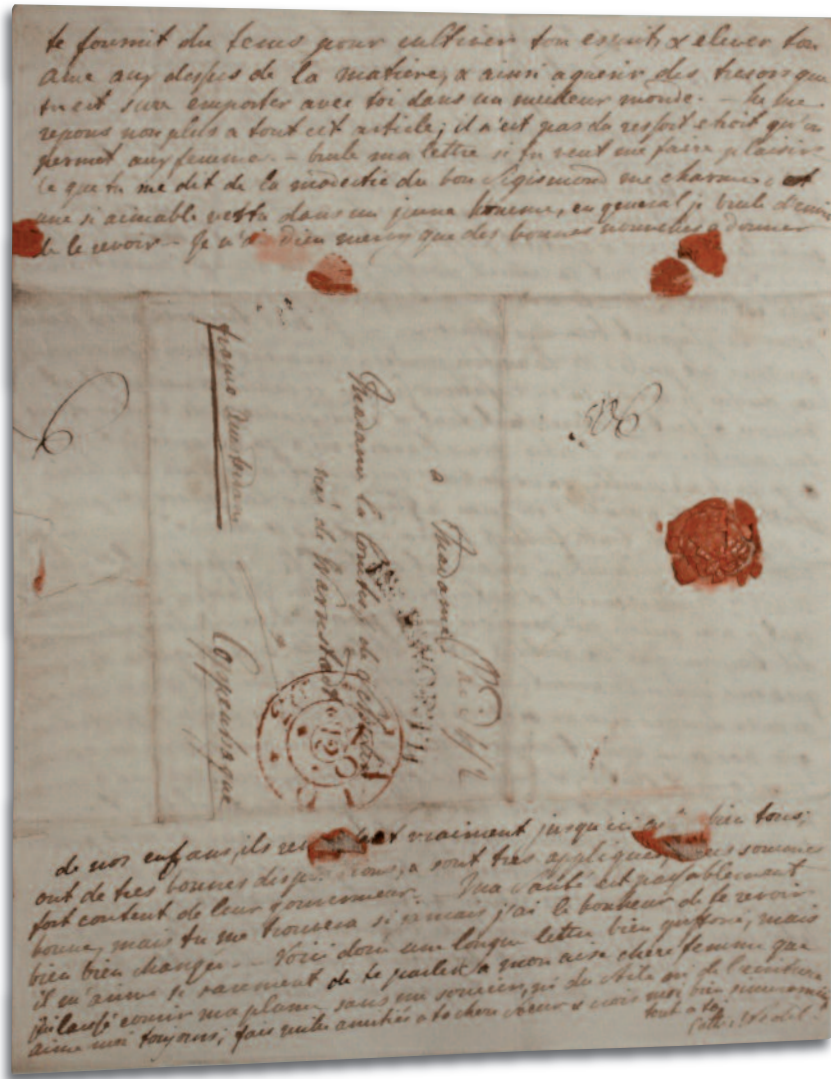 te fournit du tems pour cultiver ton esprit, & elever ton
ame aux dessus de la matiere, & ainsi aquerir des tresors que
tu est sure emporter avec toi dans un meilleur monde. — Ne me
repons non plus a tout cet article; il n'est pas du ressort etroit qu'on
permet aux femmes. — brule ma lettre si tu veut me faire plaisir
ce que tu me dit de la modestie du bon Sigismond me charme, c'est
une si aimable vertu dans un jeune homme, en general je brule d'envie
de le revoir — Je n'ai Dieu merci que des bonnes nouvelles a donner
a Madame
Madame la Comtesse de
né de Warnstedt
Coppenhague
franco
de nos enfans, ils vraiment jusqu'ici bien tous;
ont de tres bonnes dispositions, & sont tres appliqués, nous sommes
fort content de leur gouverneur. Ma santé est passablement
bonne, mais tu me trouvera si jamais j'ai le bonheur de te revoir
bien bien changée — Voici donc une longue lettre bien griffoné, mais
il m'arrive si rarement de te parler a mon aise chere femme que
j'ai laissé courir ma plume sans me soucier, ni du stile ni de l'ecriture
aime moi toujours; fais mille amitiés a ta chere soeur & crois moi bien sincerement
tout a toi